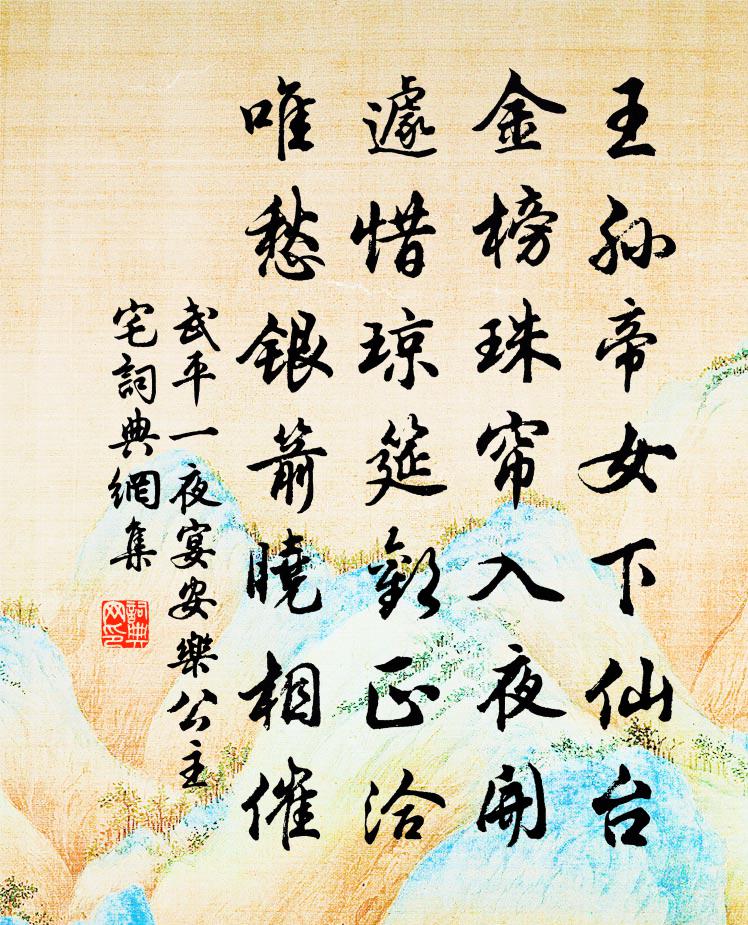 王孙帝女下仙台
金榜珠帘入夜開
遽惜琼筵歡正洽
唯愁銀箭曉相催
武平一夜宴安樂公主
宅詞典網集
詞典
网印